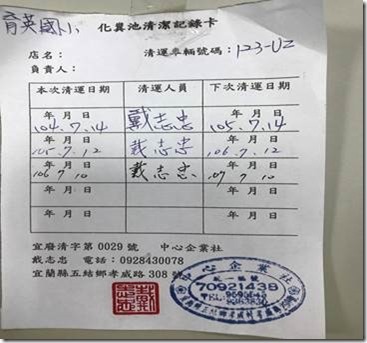 育英國小 化糞池清潔記錄卡
店名： 清運車輛號碼：123-UZ
負責人：
本次清運日期 清運人員 下次清運日期
年 月 日 年 月 日
104.7.14 戴志忠 105.7.14
年 月 日 年 月 日
105.7.12 戴志忠 106.7.12
年 月 日 年 月 日
106.7.10 戴志忠 107.7.10
年 月 日 年 月 日
年 月 日 年 月 日
宜廢清字第0029號 中心企業社
戴志忠 電話：0928430078
宜蘭縣五結鄉孝威路308號
中心企業社
統一編號
70921438